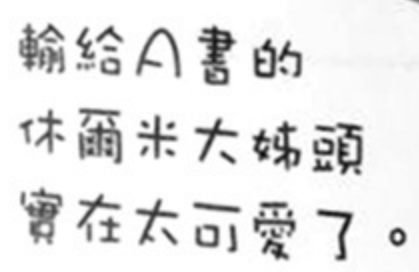 輸給A書的
休爾米大姊頭
實在太可愛了。